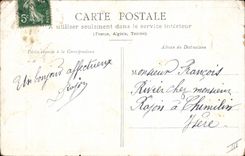 CARTE POSTALE
A utiliser seulement dans le service intérieur
(France, Algérie, Tunisie)
Partie réservée à la Correspondance
Adresse du Destinataire
Un bonjour affectueux
Rajon
Monsieur François
Rivier chez monsieur
Rajon à Chimilin
Isère